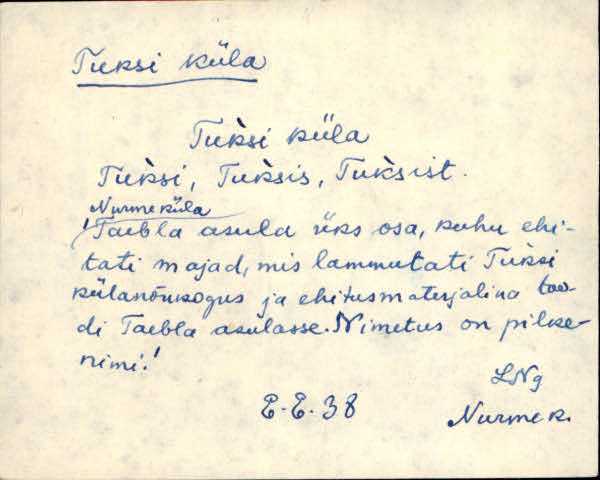 Tuksi küla
Tuksi küla
Tuksi, Tuksis, Tuksist.
Nurmeküla
! Taebla asula üks osa, kuhu ehi-
tati majad, mis lammutati Tuksi
külanõukogus ja ehitusmaterjalina too-
di Taebla asulasse. Nimetus on pilke-
nimi!
LNg
E.E. 38
Nurme k.